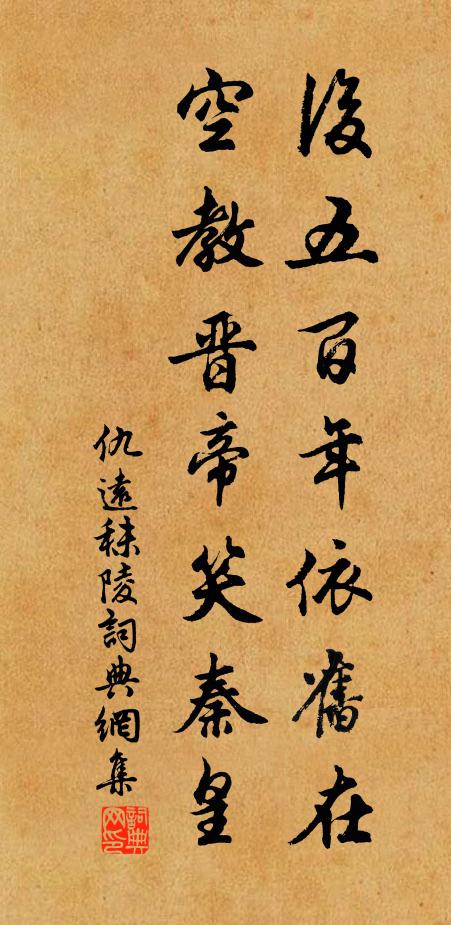 後五百年依舊在
空教晋帝笑秦皇
仇遠秣陵詞典網集
詞典网印